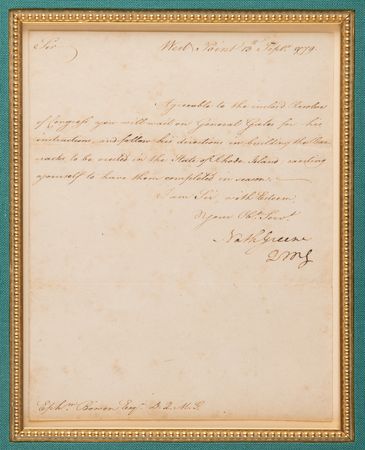 Sir West Point 13th Sept. 1779.
Agreeable to the inclosd Resolve
of Congress you will wait on General Gates for his
instructions, and follow his directions in building the Bar-
racks to be erected in the State of Rhode Island, exerting
yourself to have them completed in season.
I am Sir, with Esteem
Your Obt. Servt.
Nath Greene
QMG
Ephm. Bowen Esqr. D.Q.M.G.